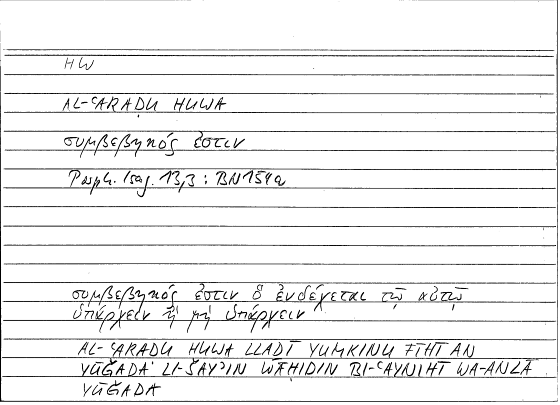 HW
AL-ʿARAḌU HUWA
συμβεβηκός ἐστιν
Porph. Isag. 13,3 : BN 154a
συμβεβηκός ἐστιν ὃ ἐνδέχεται τῷ αὐτῷ
ὑπάρχειν ἢ μὴ ὑπάρχειν
AL-ʿARAḌU HUWA LLAḎĪ YUMKINU FĪHI AN
YŪǦADA LI-ŠAYʾIN WĀḤIDIN BI-ʿAYNIHĪ WA-AN LĀ
YŪǦADA